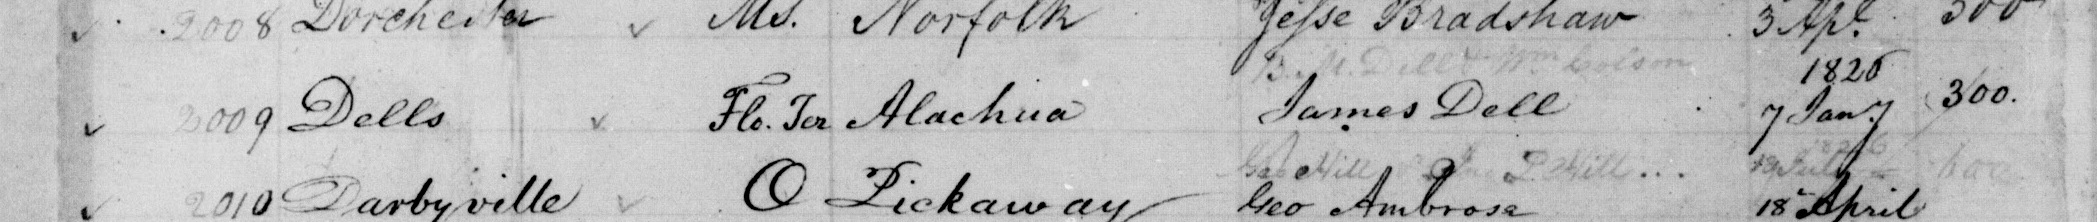 2008 Dorchester Ms. Norfolk Jesse Bradshaw 3 Apl. 500
B. M. Dell & Wm Colson 1826
2009 Dells Flo. Ter Alachua James Dell 7 Jany 300.
Geo Hill P. Hill 600
2010 Darbyville O Pickaway Geo Ambrose 18 April